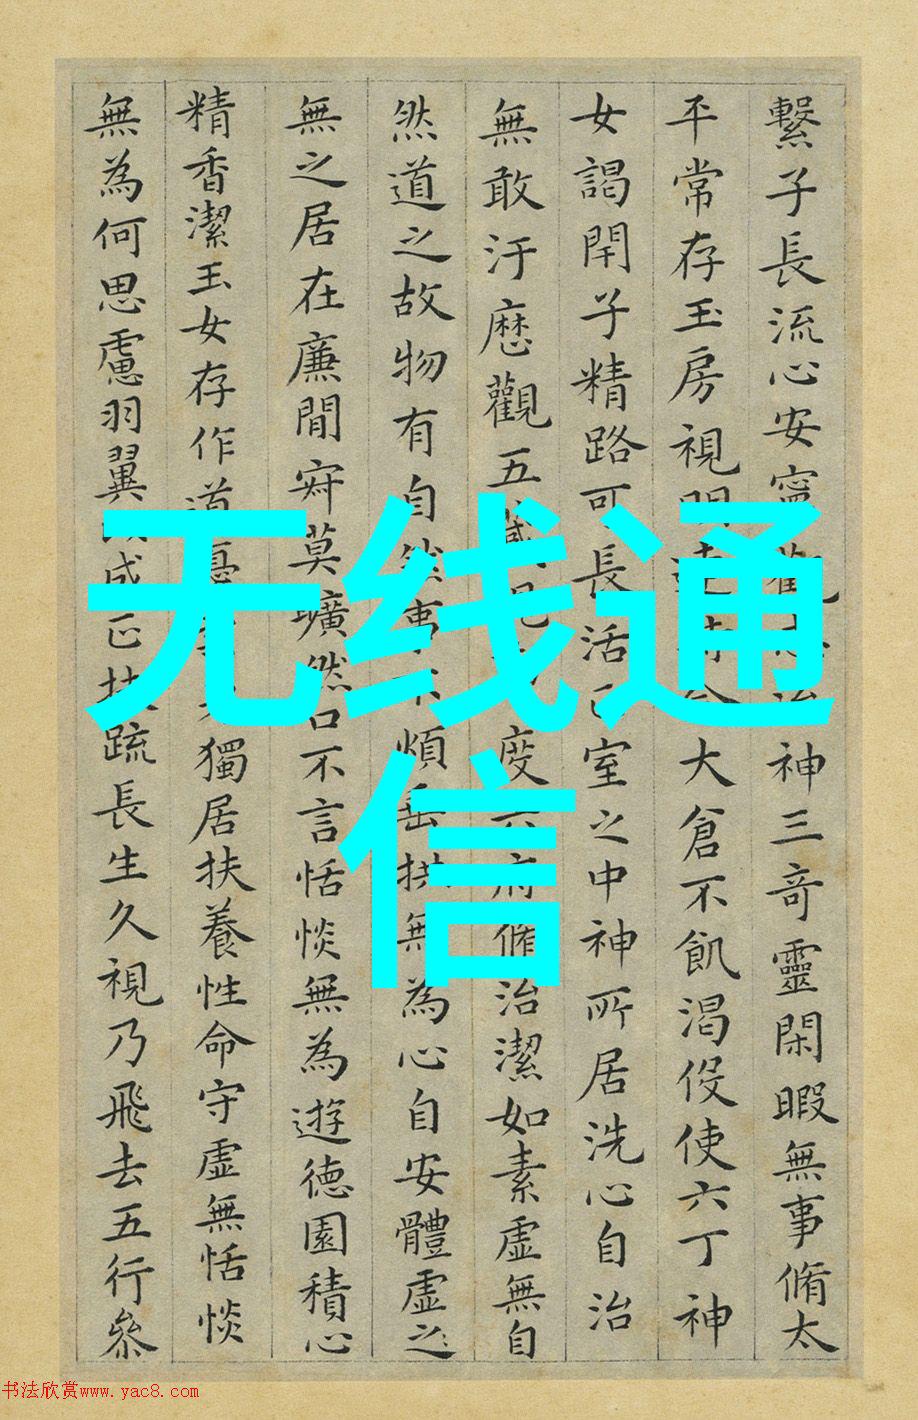 繫子長流心安寧觀神三奇靈閑暇無事脩太
平常存玉房視明大倉不飢渴役使六丁神
女謁閇子精路可長活室之中神所居洗心自治
無敢汙歷觀五藏度六府脩治潔如素虛無自
然道之故物有自然事不煩垂拱無為心自安體虛之
無之居在廉間寂莫曠然口不言恬惔無為遊德園積心
精香潔玉女存作道憂獨居扶養性命守虛無恬惔
無為何思慮羽翼成正扶疏長生久視乃飛去五行參
无线通
信
书法欣赏www.yac8.com